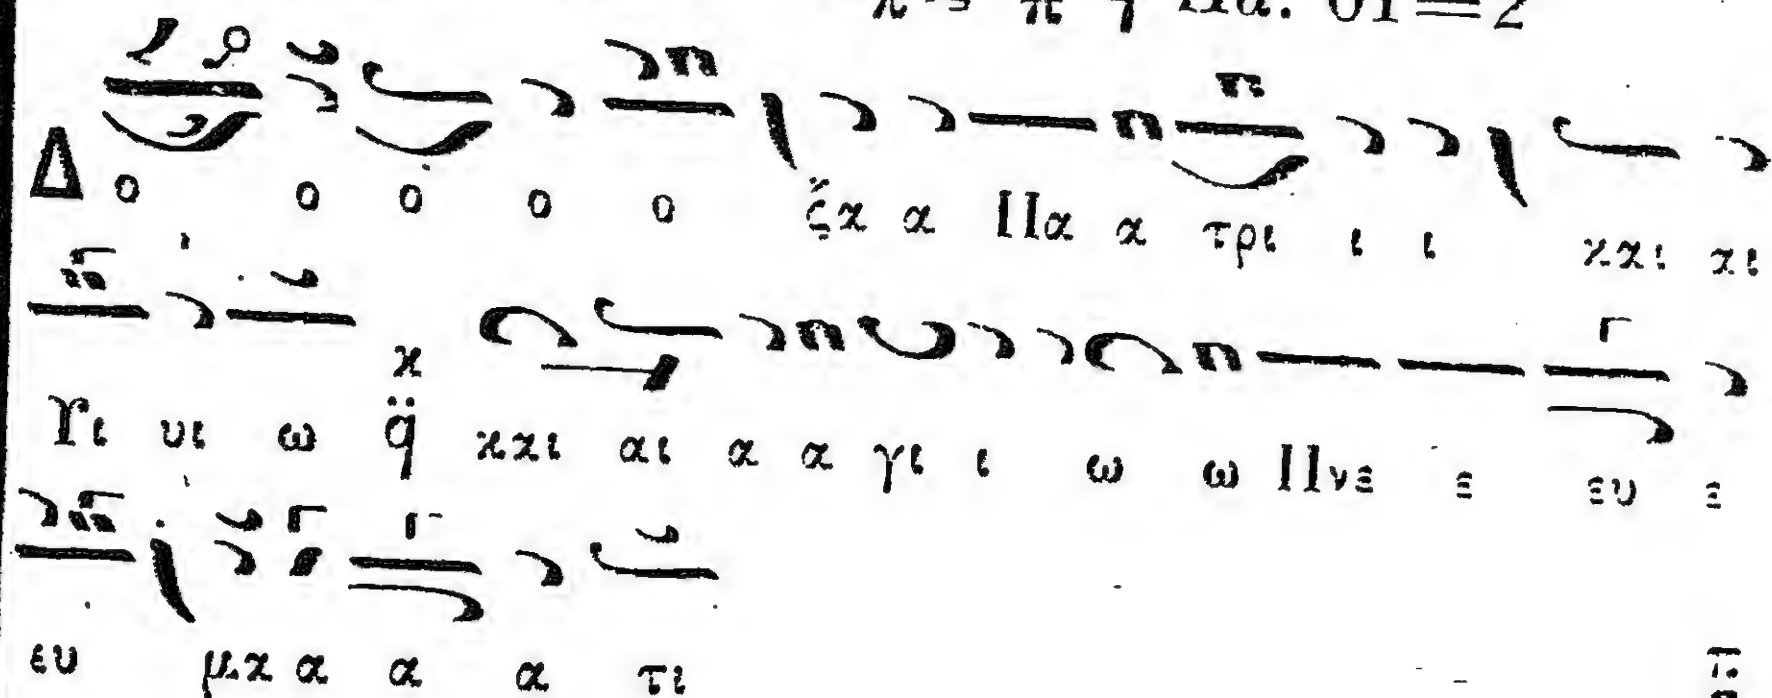 Πα.
Δο ο ο ο ο ζα α Πα α τρι ι ι και αι
Υι υι ω και αι α α γι ι ω ω Πνε ε ευ ε
ευ μα α α α τι